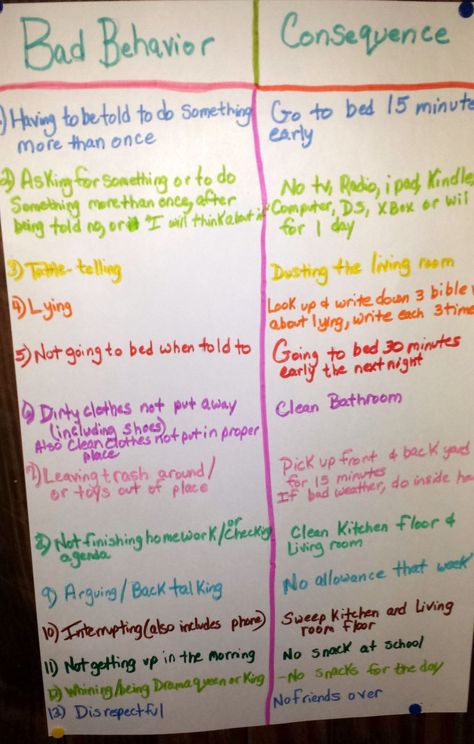 Bad Behavior
Consequence
1) Having to be told to do something
more than once
Go to bed 15 minute
early
2) Asking for something or to do
Something more than once, after
being told no, or "I will think about it"
No tv, Radio, ipad, Kindle,
Computer, DS, XBox or wii
for 1 day
3) Tattle-telling
Dusting the living room
4) Lying
Look up & write down 3 bible
about lying, write each 3 time
5) Not going to bed when told to
Going to bed 30 minutes
early the next night
6) Dirty clothes not put away
(including shoes)
Also Clean clothes not put in proper
place
Clean Bathroom
7) Leaving trash around/
or toys out of place
Pick up front & back yard
for 15 minutes
If bad weather, do inside
8) Not finishing homework/or checking
agenda
Clean Kitchen floor &
Living room
9) Arguing/Back talking
No allowance that week
10) Interrupting (also includes phone)
Sweep Kitchen and Living
room floor
11) Not getting up in the morning
No snack at school
12) Whining/being Drama queen or King
-No snacks for the day
13) Disrespectful
No friends over